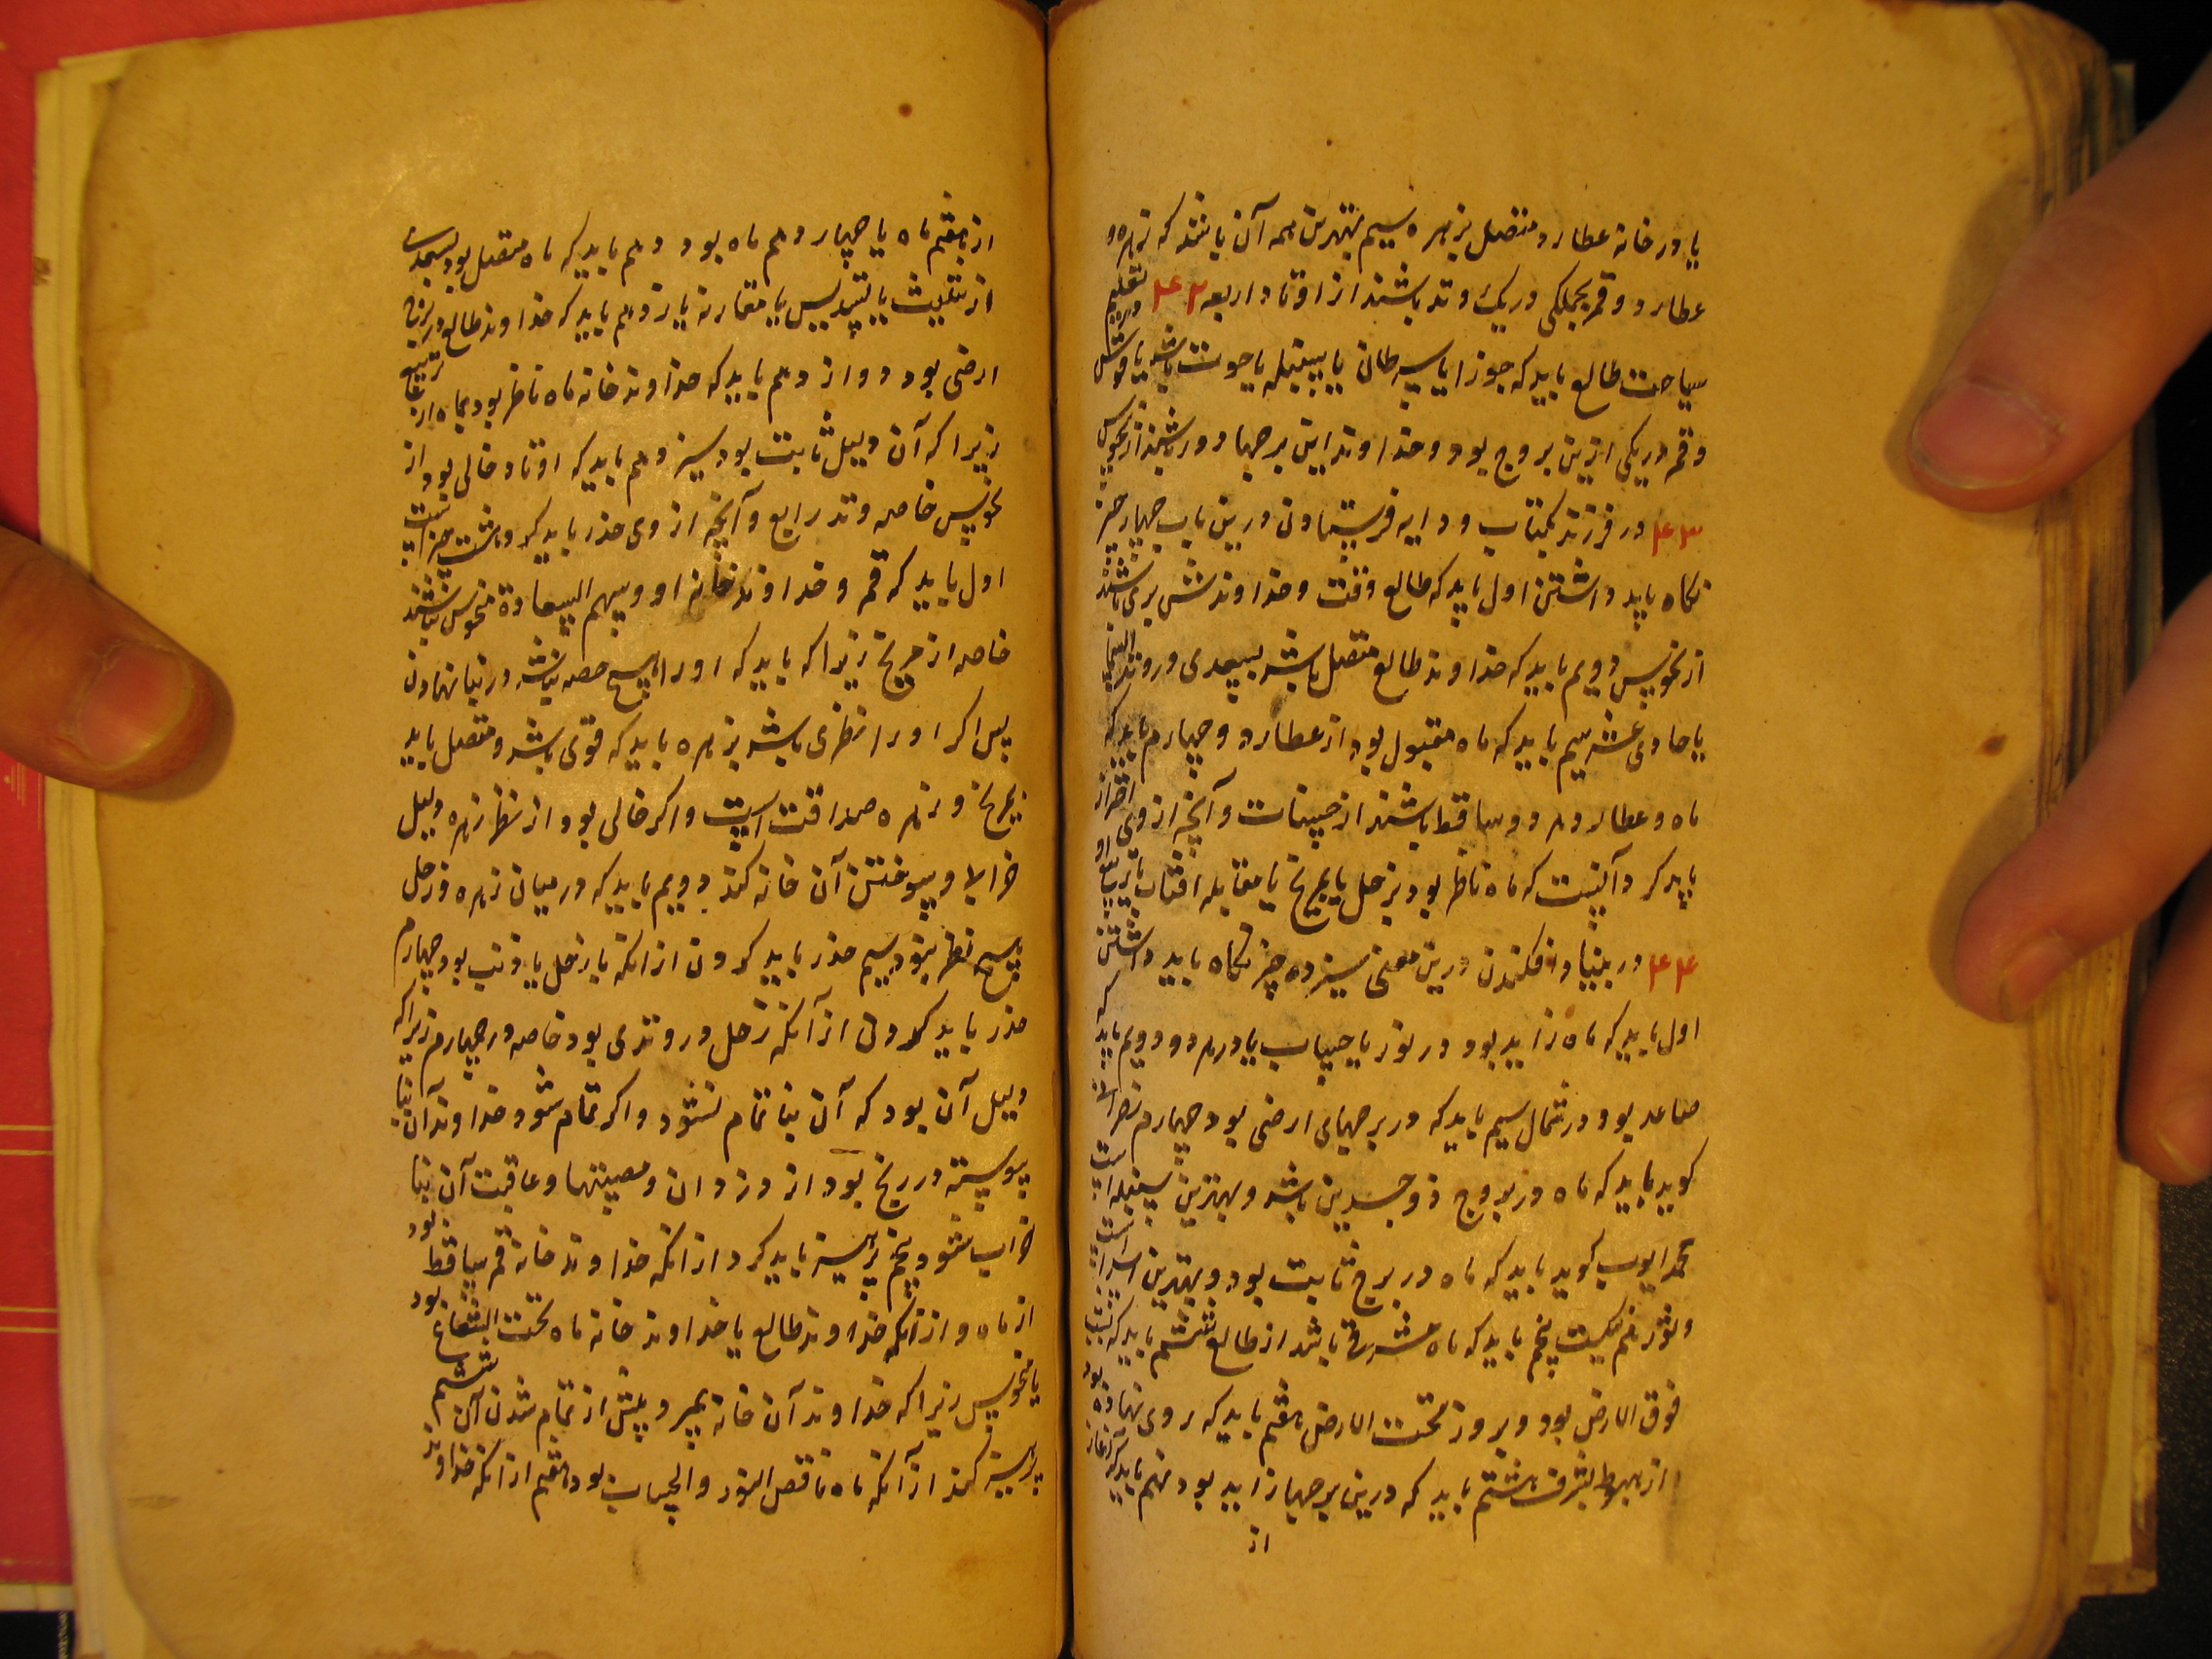 یا در خانه عطارد متصل بزهره سیم بهترین همه آن باشد که زهره و
عطارد و قمر بجملکی در یک وتد باشند از اوتاد اربعه ۴۲ در تعلیم
سیاحت طالع باید که جوزا یا سرطان یا سنبله یا حوت باشد یا قوس
و قمر در یکی ازین بروج بود و خداوند این برجها دور باشند از نحوس
۴۳ در فرزند بکتاب و دایه فرستادن درین باب چهار چیز
نکاه باید داشتن اول باید که طالع وقت و خداوندش بری باشند
از نحوس دویم باید که خداوند طالع متصل باشد بسعدی در وتد السما
یا حادی عشر سیم باید که ماه مقبول بود از عطارد و چهارم باید که
ماه و عطارد هر دو ساقط باشند از حسنات و آنچه از وی احتراز
باید کرد آنست که ماه ناظر بود بزحل یا بمریخ یا مقابله افتاب یا تربیع او
۴۴ در بنیاد افکندن درین معنی سیزده چیز نکاه باید داشتن
اول باید که ماه زاید بود در نور یا حساب یا در هر دو دویم باید که
صاعد بود در شمال سیم باید که در برجهای ارضی بود چهارم
کوید باید که ماه در بروج ذوجسدین باشد و بهترین سنبله است
محمد ایوب کوید باید که ماه در برج ثابت بود و بهترین اسد است
و ثور هم نیکست پنجم باید که ماه مشرقی باشد از طالع ششم باید که بشب
فوق الارض بود و بروز تحت الارض هفتم باید که روی نهاده بود
از هبوط بشرف هشتم باید که درین برجها زاید بود نهم باید که
از
از هفتم ماه یا چهاردهم ماه بود دهم باید که ماه متصل بود بسعدی
از تثلیث یا تسدیس یا مقارنه یازدهم باید که خداوند طالع در برجهای
ارضی بود دوازدهم باید که خداوند خانه ماه ناظر بود بماه از تربیع
زیرا که آن دلیل ثابت بود سیزدهم باید که اوتاد خالی بود از
نحوس خاصه وتد رابع و آنچه از وی حذر باید کرد هشت چیز است
اول باید که قمر و خداوند خانه او و سهم السعادة منحوس نباشند
خاصه از مریخ زیرا که باید که او را هیچ حصه نباشد در بنا نهادن
پس اکر او را نظری باشد بزهره باید که قوی باشد و متصل باید
بمریخ و زهره صداقت است و اکر خالی بود از نظر زهره دلیل
خرابی و سوختن آن خانه کند دویم باید که در میان زهره و زحل
هیچ نظر نبود سیم حذر باید کردن از انکه با زحل یا ذنب بود چهارم
حذر باید کردن از آنکه زحل در وتدی بود خاصه در چهارم زیرا که
دلیل آن بود که آن بنا تمام نشود و اکر تمام شود خداوند آن بنا
پیوسته در رنج بود از دزدان و مصیبتها و عاقبت آن بنا
خراب شود پنجم پرهیز باید کرد از انکه خداوند خانه قمر ساقط بود
از ماه و از انکه خداوند طالع یا خداوند خانه ماه تحت الشعاع بود
یا منحوس زیرا که خداوند آن خانه بمیرد پیش از تمام شدن آن ششم
پرهیز کند از آنکه ماه ناقص النور و الحساب بود هفتم از انکه خداوند